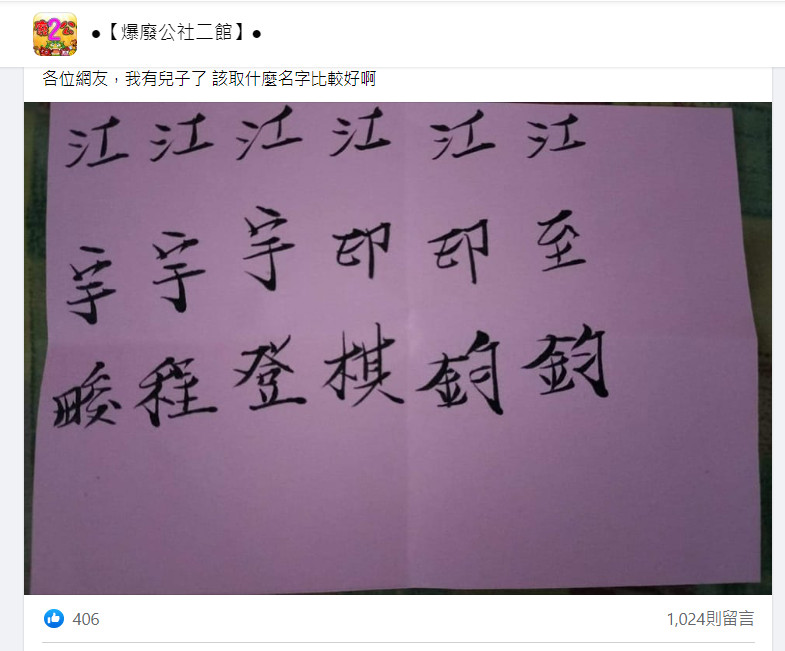 廢2公
●【爆廢公社二館】●
各位網友，我有兒子了 該取什麼名字比較好啊
江至鈞
江印鈞
江印棋
江宇登
江宇程
江宇畯
406
1,024則留言